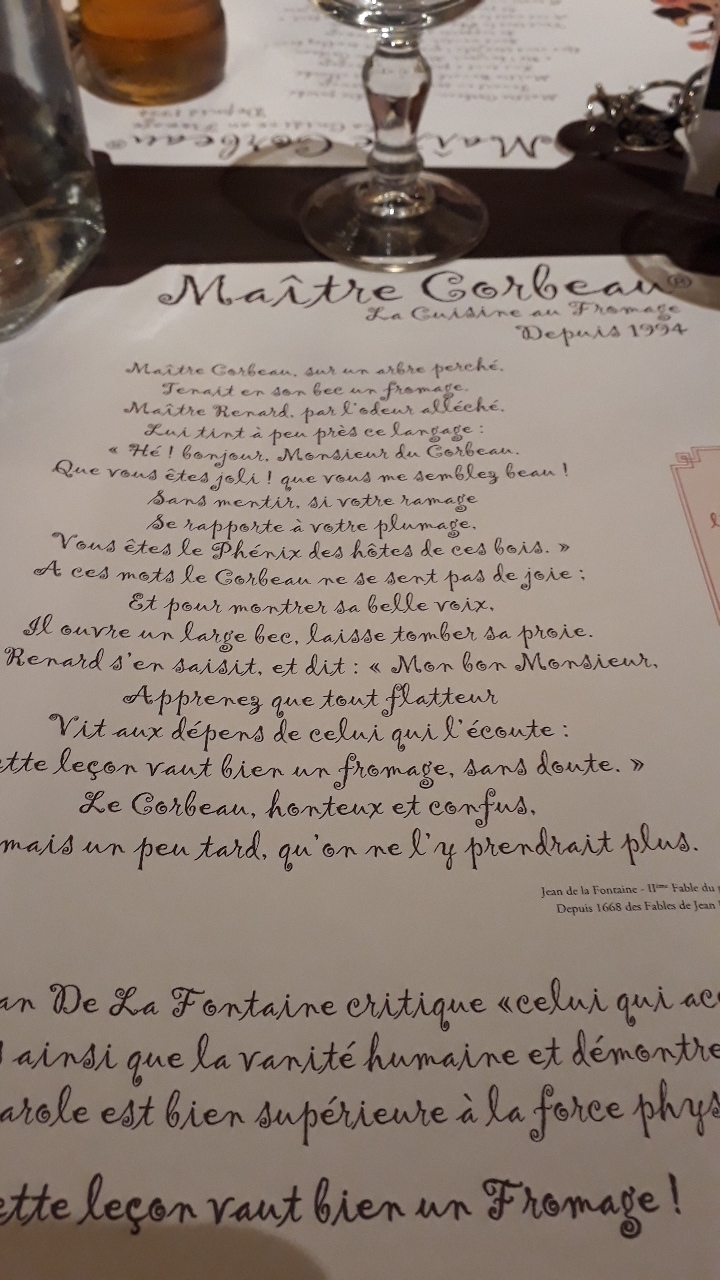 Maître Corbeau®
La Cuisine au Fromage
Depuis 1994
Maître Corbeau, sur un arbre perché,
Tenait en son bec un fromage.
Maître Renard, par l'odeur alléché,
Lui tint à peu près ce langage :
« Hé ! bonjour, Monsieur du Corbeau.
Que vous êtes joli ! que vous me semblez beau !
Sans mentir, si votre ramage
Se rapporte à votre plumage,
Vous êtes le Phénix des hôtes de ces bois. »
A ces mots le Corbeau ne se sent pas de joie ;
Et pour montrer sa belle voix,
Il ouvre un large bec, laisse tomber sa proie.
Renard s'en saisit, et dit : « Mon bon Monsieur,
Apprenez que tout flatteur
Vit aux dépens de celui qui l'écoute :
ette leçon vaut bien un fromage, sans doute. »
Le Corbeau, honteux et confus,
mais un peu tard, qu'on ne l'y prendrait plus.
Jean de la Fontaine - IIème Fable du
Depuis 1668 des Fables de Jean
an De La Fontaine critique «celui qui acc
ainsi que la vanité humaine et démontre
arole est bien supérieure à la force phys
ette leçon vaut bien un Fromage !
Maître Corbeau®
La Cuisine au Fromage
Depuis 1994